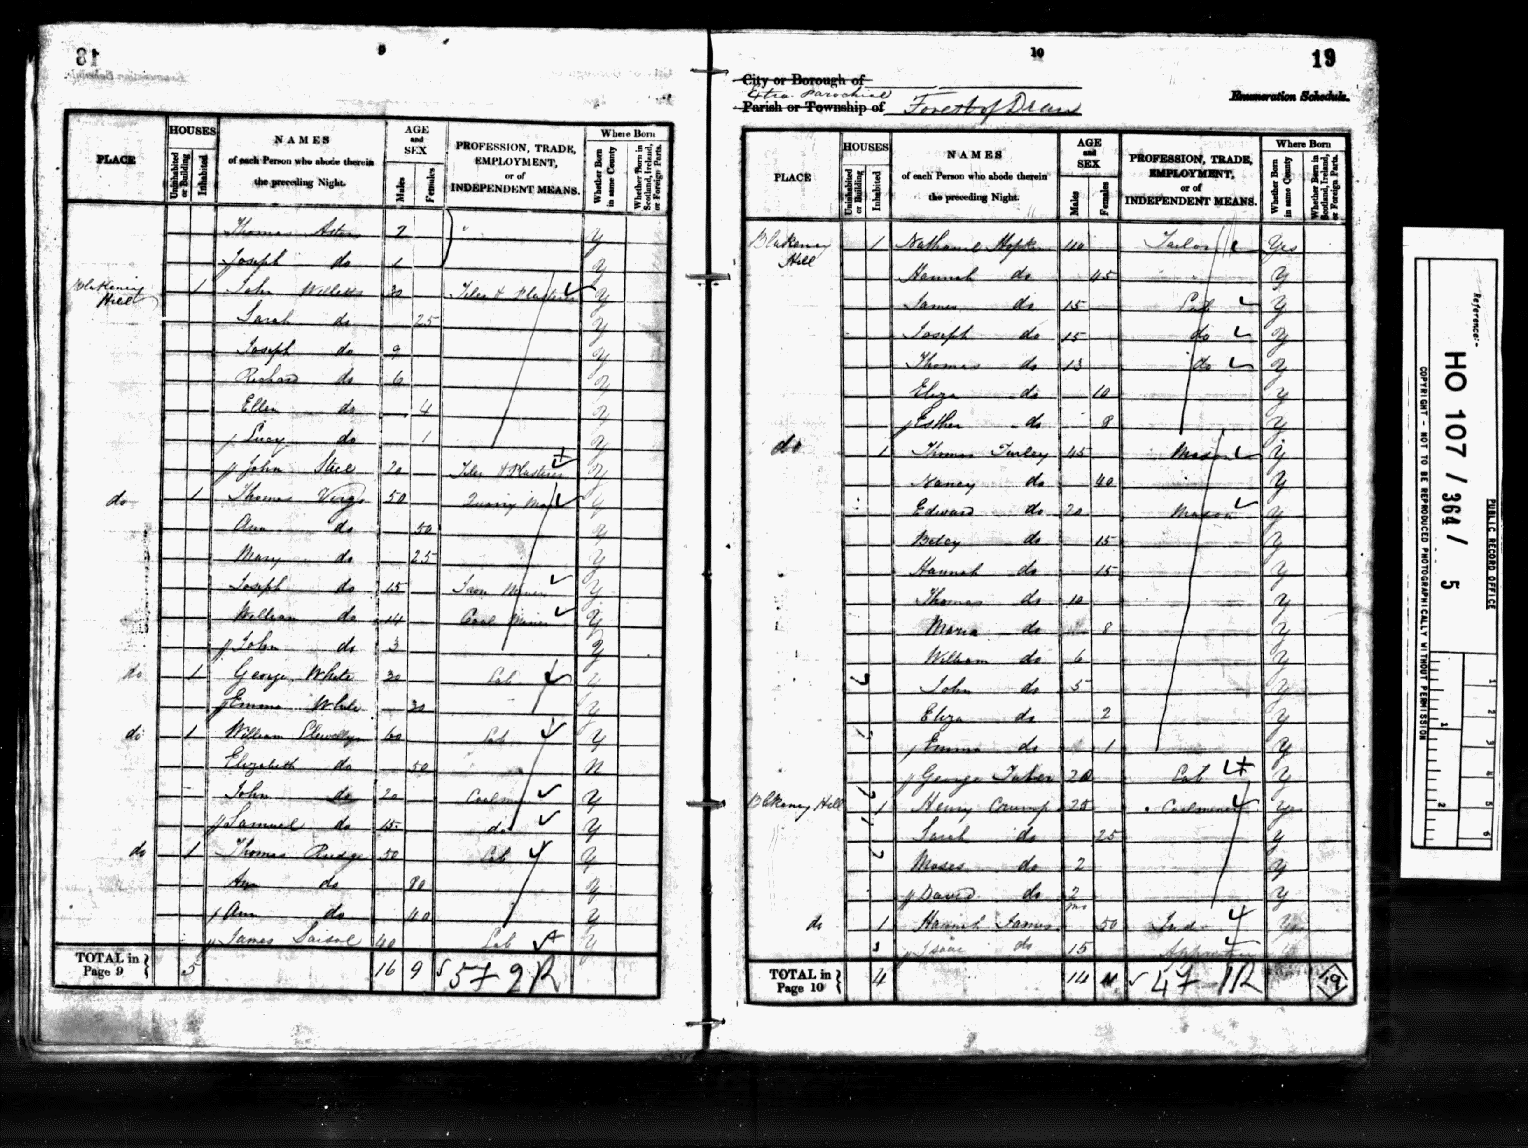 18
9
PLACE HOUSES Uninhabited or Building Inhabited NAMES of each Person who abode therein the preceding Night. AGE and SEX Males Females PROFESSION, TRADE, EMPLOYMENT, or of INDEPENDENT MEANS. Where Born Whether Born in same County Whether Born in Scotland, Ireland, or Foreign Parts.
Thomas 7 Y
Joseph do 1 Y
Blakeney Hill 1 John Willetts 30 Tiler & Plasterer Y
Sarah do 25 Y
Joseph do 9 Y
Richard do 6 Y
Ellen do 4 Y
Lucy do 1 Y
John Steel 20 Tiler & Plasterer Y
do 1 Thomas Virgo 50 Quarry Man Y
Ann do 50 Y
Mary do 25 Y
Joseph do 15 Iron Miner Y
William do 14 Coal Miner Y
John do 3 Y
do 1 George White 30 Lab Y
Emma White 30 Y
do 1 William Llewellyn 60 Lab Y
Elizabeth do 50 N
John do 20 Coalminer Y
Samuel do 15 do Y
do 1 Thomas Rudge 50 Lab Y
Ann do 80 Y
Ann do 40 Y
James 40 Lab Y
TOTAL in Page 9 5 16 9 57 2R
10
19
City or Borough of
Extra Parochial
Parish or Township of Forest of Dean
Enumeration Schedule.
PLACE HOUSES Uninhabited or Building Inhabited NAMES of each Person who abode therein the preceding Night. AGE and SEX Males Females PROFESSION, TRADE, EMPLOYMENT, or of INDEPENDENT MEANS. Where Born Whether Born in same County Whether Born in Scotland, Ireland, or Foreign Parts.
Blakeney Hill 1 Nathaniel Hopkins 40 Tailor Yes
Hannah do 45 Y
James do 15 Lab Y
Joseph do 15 do Y
Thomas do 13 do Y
Eliza do 10 Y
Esther do 8 Y
do 1 Thomas Turley 45 Mason Y
Nancy do 40 Y
Edward do 20 Mason Y
Betsy do 15 Y
Hannah do 15 Y
Thomas do 10 Y
Maria do 8 Y
William do 6 Y
John do 5 Y
Eliza do 2 Y
Emma do 1 Y
George 20 Lab Y
Blakeney Hill 1 Henry Crump 25 Coalminer Yes
Sarah do 25 Y
Moses do 2 Y
David do 2 mo Y
do 1 Hannah James 50 Ind Yes
Isaac do 15
TOTAL in Page 10 4 14 11 47 1R
19
Reference:-
HO 107 / 364 / 5
PUBLIC RECORD OFFICE
COPYRIGHT - NOT TO BE REPRODUCED PHOTOGRAPHICALLY WITHOUT PERMISSION
1 2 3 4 5 6
1 2